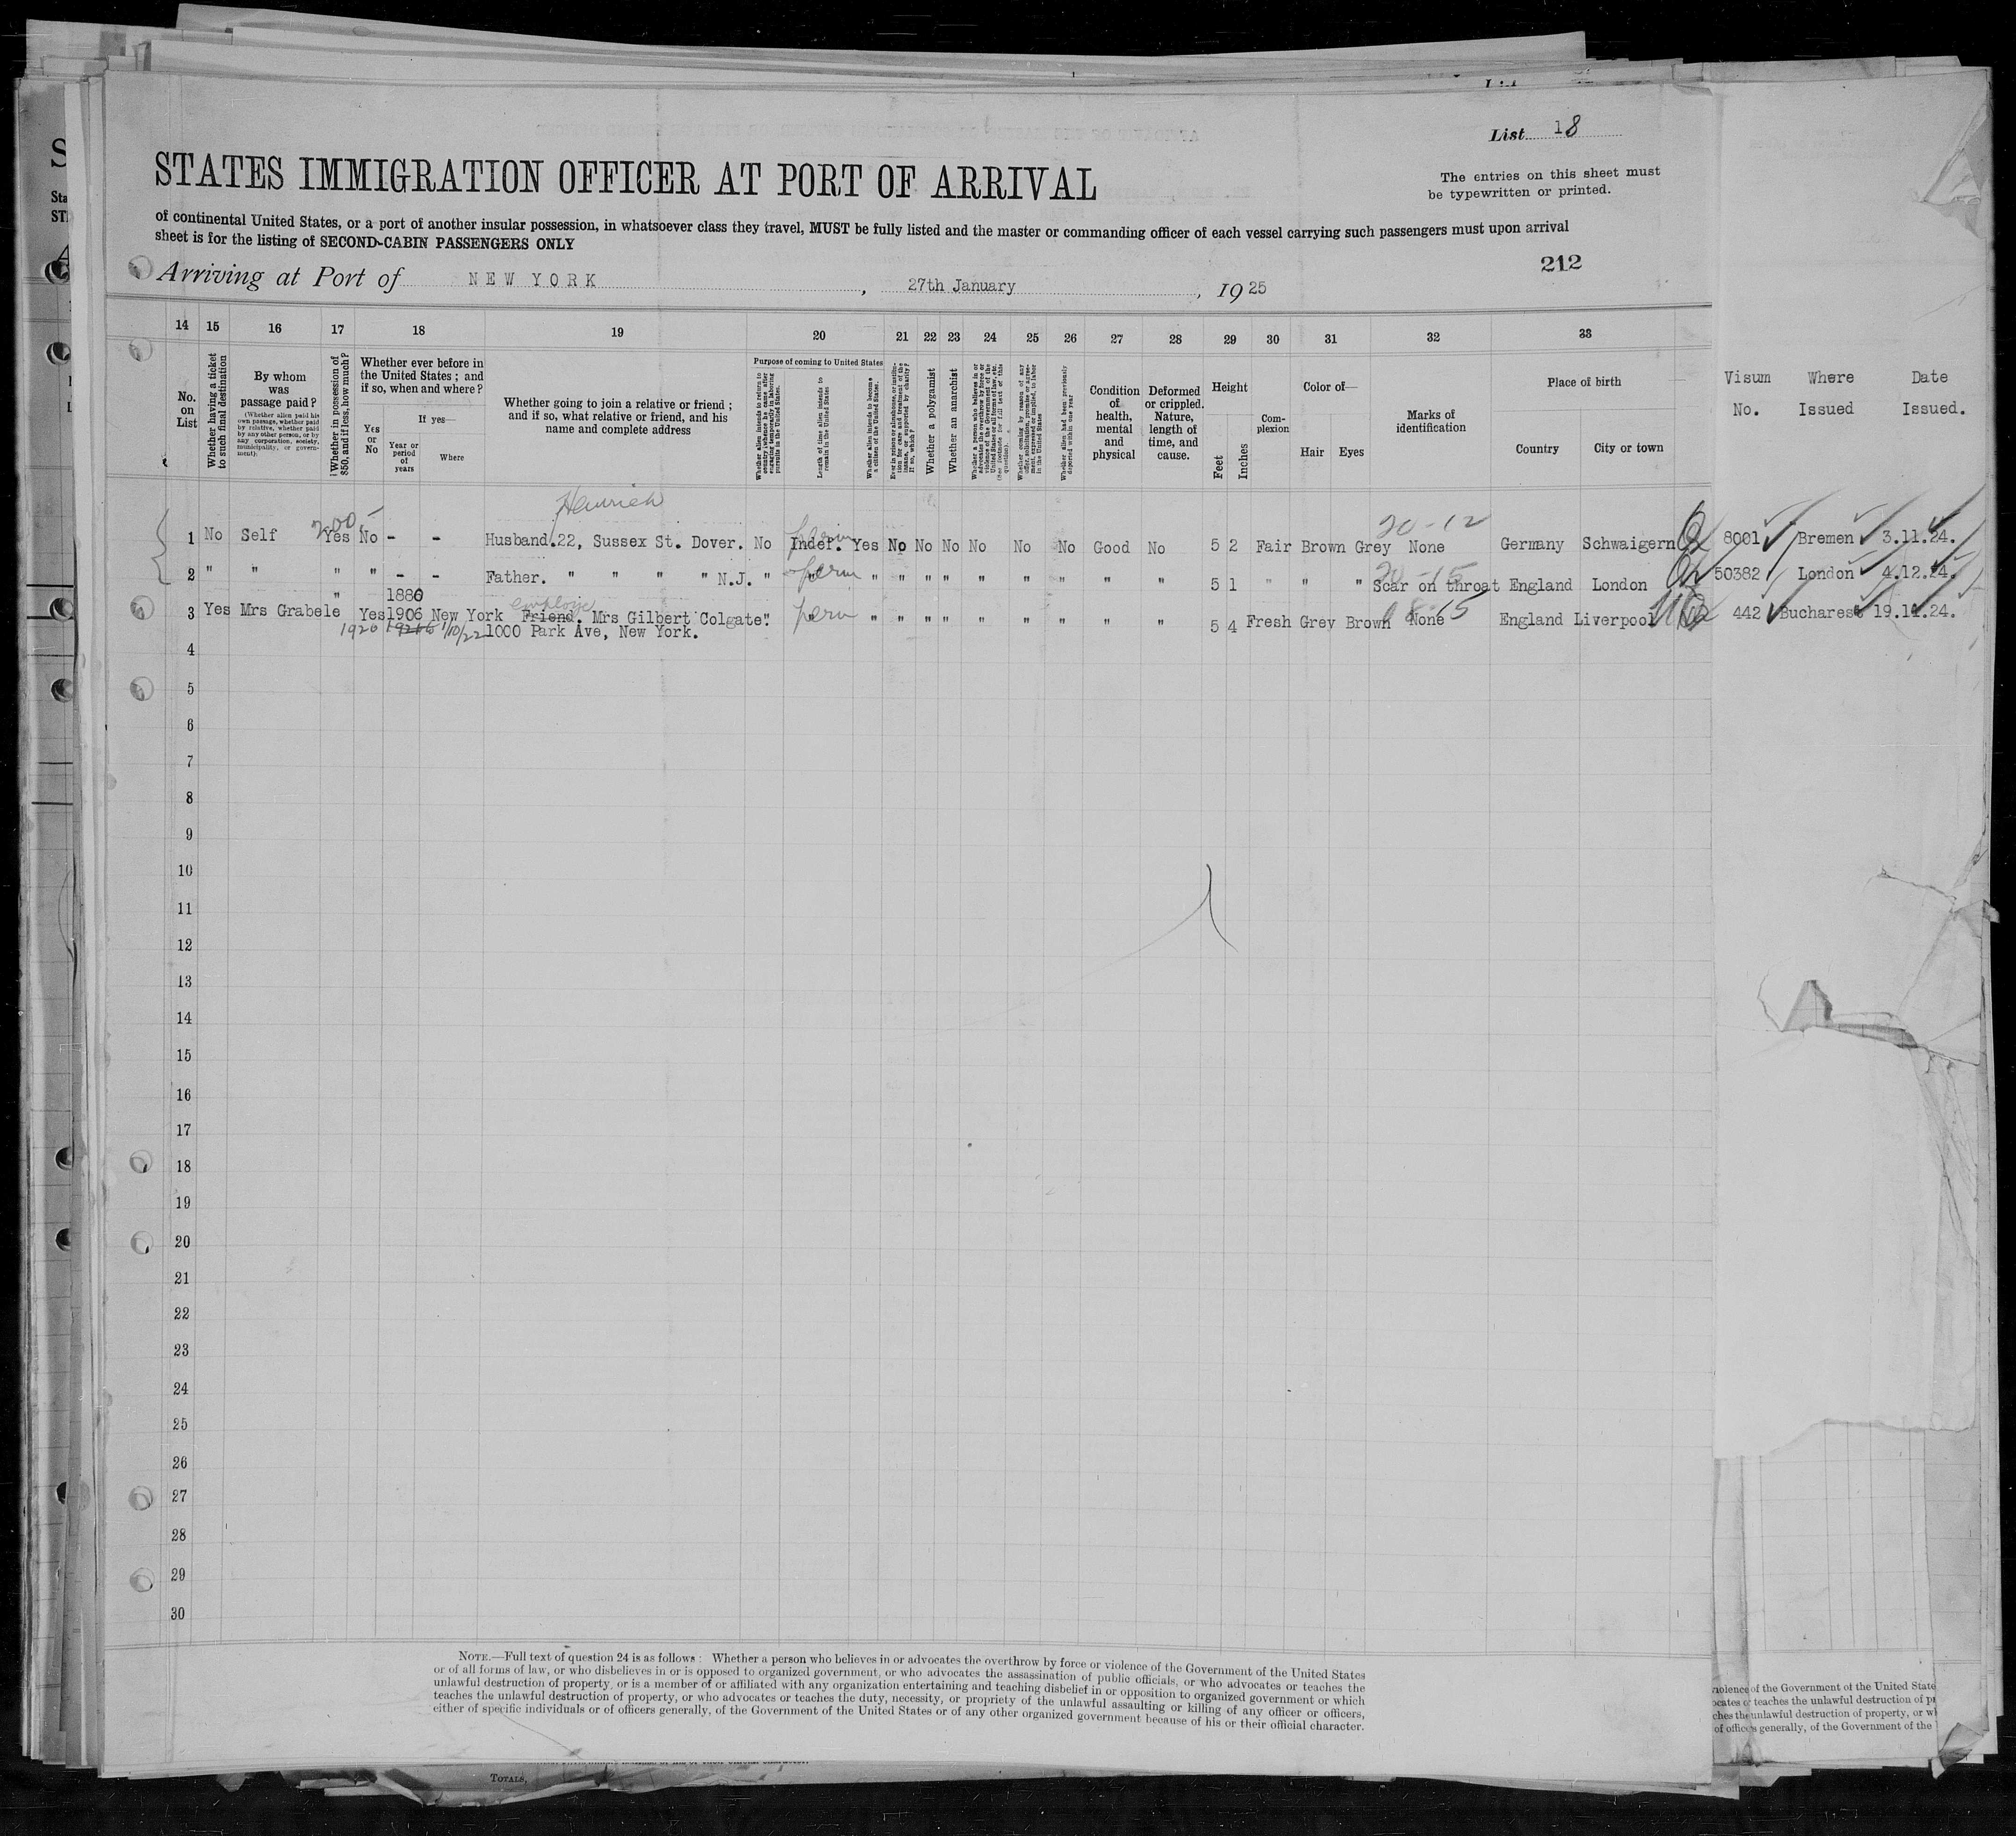 List 18
STATES IMMIGRATION OFFICER AT PORT OF ARRIVAL
The entries on this sheet must
be typewritten or printed.
of continental United States, or a port of another insular possession, in whatsoever class they travel, MUST be fully listed and the master or commanding officer of each vessel carrying such passengers must upon arrival
sheet is for the listing of SECOND-CABIN PASSENGERS ONLY
212
Arriving at Port of NEW YORK, 27th January, 1925
14 15 16 17 18 19 20 21 22 23 24 25 26 27 28 29 30 31 32 33
No. on List
Whether having a ticket to such final destination
By whom was passage paid?
(Whether alien paid his own passage, whether paid by relative, whether paid by any other person, or by any corporation, society, municipality, or government).
Whether in possession of $50, and if less, how much?
Whether ever before in the United States; and if so, when and where?
Yes or No
If yes—
Year or period of years
Where
Whether going to join a relative or friend; and if so, what relative or friend, and his name and complete address
Purpose of coming to United States
Whether alien intends to return to country whence he came after engaging temporarily in laboring pursuits in the United States.
Length of time alien intends to remain in the United States
Whether alien intends to become a citizen of the United States.
Ever in prison or almshouse, or institution for care and treatment of the insane, or supported by charity? If so, which?
Whether a polygamist
Whether an anarchist
Whether coming by reason of any offer, solicitation, promise or agreement, expressed or implied, to labor in the United States
Whether alien had been previously deported within one year
Condition of health, mental and physical
Deformed or crippled. Nature, length of time, and cause.
Height
Feet
Inches
Complexion
Color of—
Hair Eyes
Marks of identification
Place of birth
Country City or town
Visum No. Where Issued Date Issued.
Heinrich
200,- 20-12
1 No Self Yes No - - Husband. 22, Sussex St. Dover. No Indef. perm Yes No No No No No No Good No 5 2 Fair Brown Grey None Germany Schwaigern 8001 Bremen 3.11.24.
20-15
2 " " " " - - Father. " " " " N.J. " " perm " " " " " " " " " 5 1 " " " Scar on throat England London 50382 London 4.12.24.
" 1886
employer
3 Yes Mrs Grabele Yes 1906 New York Friend. Mrs Gilbert Colgate. " perm " " " " " " " " " 5 4 Fresh Grey Brown None England Liverpool 442 Bucharest 19.11.24.
1920 1/10/22 1000 Park Ave, New York.
4
5
6
7
8
9
10
11
12
13
14
15
16
17
18
19
20
21
22
23
24
25
26
27
28
29
30
NOTE.—Full text of question 24 is as follows: Whether a person who believes in or advocates the overthrow by force or violence of the Government of the United States
or of all forms of law, or who disbelieves in or is opposed to organized government, or who advocates the assassination of public officials, or who advocates or teaches the
unlawful destruction of property, or is a member of or affiliated with any organization entertaining and teaching disbelief in or opposition to organized government or which
teaches the unlawful destruction of property, or who advocates or teaches the duty, necessity, or propriety of the unlawful assaulting or killing of any officer or officers,
either of specific individuals or of officers generally, of the Government of the United States or of any other organized government because of his or their official character.
of the Government of the United State
teaches the unlawful destruction of
unlawful destruction of property, or
generally, of the Government of the
TOTALS,